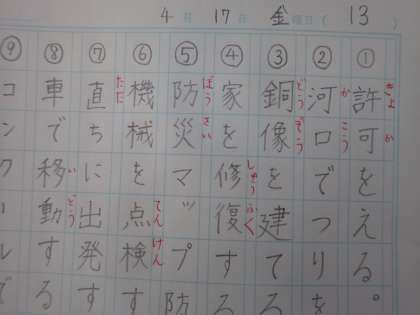 4月 17日 金曜日 ( 13 )
① 許可をえる。
きょ か
② 河口でつりを
か こう
③ 銅像を建てる
どう ぞう
④ 家を修復する
しゅう ふく
⑤ 防災マップ防
ぼう さい
⑥ 機械を点検す
てん けん
⑦ 直ちに出発す
ただ
⑧ 車で移動する
い どう
⑨ コンクールで